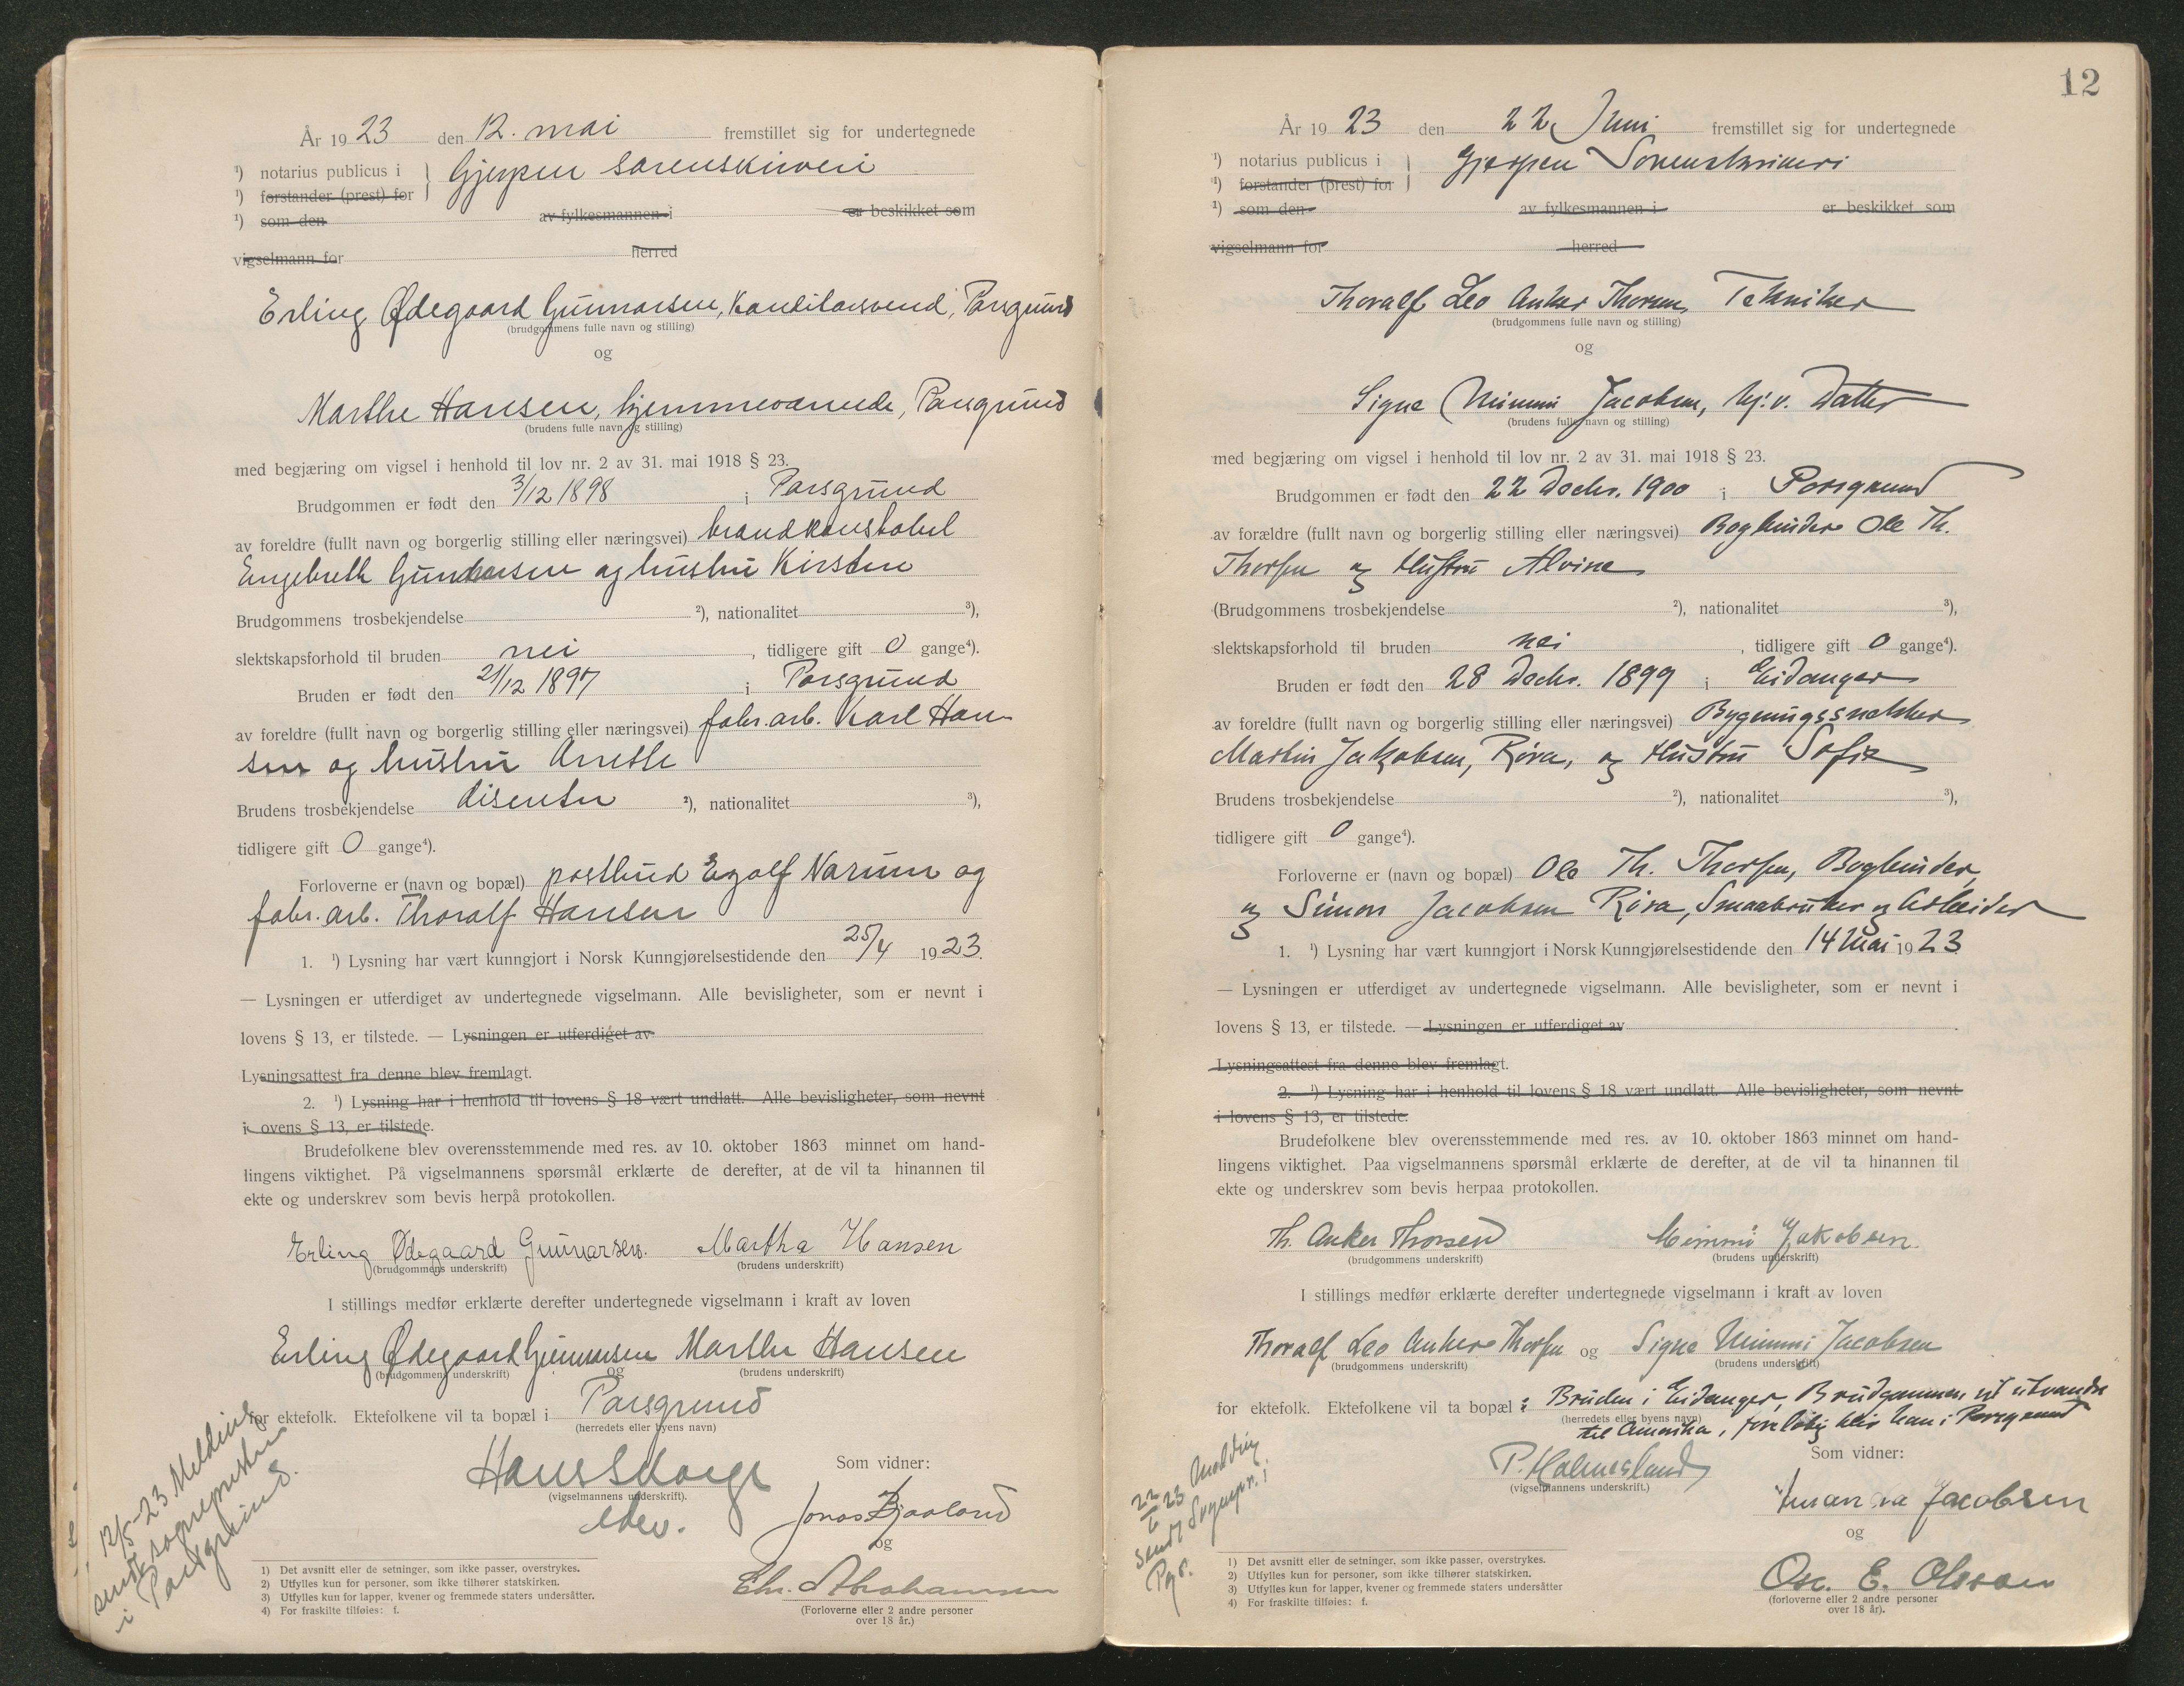 År 1923 den 12. mai fremstillet sig for undertegnede
¹) notarius publicus i } Gjerpen sorenskriveri
¹) forstander (prest) for
¹) som den av fylkesmannen i er beskikket som
vigselmann for herred
Erling Ødegaard Gunnarsen, Konditorsvend, Porsgrund
(brudgommens fulle navn og stilling)
og
Marthe Hansen, hjemmeværende, Porsgrund
(brudens fulle navn og stilling)
med begjæring om vigsel i henhold til lov nr. 2 av 31. mai 1918 § 23.
Brudgommen er født den 3/12 1898 i Porsgrund
av foreldre (fullt navn og borgerlig stilling eller næringsvei) brandkonstabel
Engebreth Gunnarsen og hustru Kirsten
Brudgommens trosbekjendelse ²), nationalitet ³),
slektskapsforhold til bruden nei , tidligere gift 0 gange⁴).
Bruden er født den 21/12 1897 i Porsgrund
av foreldre (fullt navn og borgerlig stilling eller næringsvei) fabr. arb. Karl Han-
sen og hustru Anette
Brudens trosbekjendelse disenter ²), nationalitet ³),
tidligere gift 0 gange⁴).
Forloverne er (navn og bopæl) postbud Egolf Narum og
fabr. arb. Thoralf Hansen
1. ¹) Lysning har vært kunngjort i Norsk Kunngjørelsestidende den 25/4 1923.
— Lysningen er utferdiget av undertegnede vigselmann. Alle bevisligheter, som er nevnt i
lovens § 13, er tilstede. — Lysningen er utferdiget av
Lysningsattest fra denne blev fremlagt.
2. ¹) Lysning har i henhold til lovens § 18 vært undlatt. Alle bevisligheter, som nevnt
i ovens § 13, er tilstede.
Brudefolkene blev overensstemmende med res. av 10. oktober 1863 minnet om hand-
lingens viktighet. På vigselmannens spørsmål erklærte de derefter, at de vil ta hinannen til
ekte og underskrev som bevis herpå protokollen.
Erling Ødegaard Gunnarsen. Martha Hansen
(brudgommens underskrift) (brudens underskrift)
I stillings medfør erklærte derefter undertegnede vigselmann i kraft av loven
Erling Ødegaard Gunnarsen Marthe Hansen
(brudgommens underskrift) og (brudens underskrift)
for ektefolk. Ektefolkene vil ta bopæl i Porsgrund
(herredets eller byens navn)
Hans
(vigselmannens underskrift).
Som vidner:
Jonas Bjaaland
og
Chr. Abrahamsen
(Forloverne eller 2 andre personer
over 18 år.)
12/5-23 Melding
sendt sogneprester
i Porsgrund.
1) Det avsnitt eller de setninger, som ikke passer, overstrykes.
2) Utfylles kun for personer, som ikke tilhører statskirken.
3) Utfylles kun for lapper, kvener og fremmede staters undersåtter.
4) For fraskilte tilføies: f.
12
År 1923 den 22 Juni fremstillet sig for undertegnede
¹) notarius publicus i } Gjerpen Sorenskriveri
¹) forstander (prest) for
¹) som den av fylkesmannen i er beskikket som
vigselmann for herred
Thoralf Leo Anker Thorsen, Tekniker
(brudgommens fulle navn og stilling)
og
Signe Mimmi Jacobsen, hj. v. Datter
(brudens fulle navn og stilling)
med begjæring om vigsel i henhold til lov nr. 2 av 31. mai 1918 § 23.
Brudgommen er født den 22 Decbr. 1900 i Porsgrund
av forældre (fullt navn og borgerlig stilling eller næringsvei) Bogbinder Ole Th.
Thorsen og Hustru Alvine
(Brudgommens trosbekjendelse ²), nationalitet ³),
slektskapsforhold til bruden nei , tidligere gift 0 gange⁴).
Bruden er født den 28 Decbr. 1899 i Eidanger
av foreldre (fullt navn og borgerlig stilling eller næringsvei) Bygningssnekker
Martin Jakobsen, Røra, og Hustru Sofie
Brudens trosbekjendelse ²), nationalitet ³),
tidligere gift 0 gange⁴).
Forloverne er (navn og bopæl) Ole Th. Thorsen, Bogbinder,
og Simon Jacobsen Røra, Smaabruker og Arbeider
1. ¹) Lysning har vært kunngjort i Norsk Kunngjørelsestidende den 14 Mai 1923
— Lysningen er utferdiget av undertegnede vigselmann. Alle bevisligheter, som er nevnt i
lovens § 13, er tilstede. — Lysningen er utferdiget av .
Lysningsattest fra denne blev fremlagt.
2. ¹) Lysning har i henhold til lovens § 18 vært undlatt. Alle bevisligheter, som nevnt
i lovens § 13, er tilstede.
Brudefolkene blev overensstemmende med res. av 10. oktober 1863 minnet om hand-
lingens viktighet. Paa vigselmannens spørsmål erklærte de derefter, at de vil ta hinannen til
ekte og underskrev som bevis herpaa protokollen.
Th. Anker Thorsen Mimmi Jakobsen.
(brudgommens underskrift) (brudens underskrift)
I stillings medfør erklærte derefter undertegnede vigselmann i kraft av loven
Thoralf Leo Anker Thorsen og Signe Mimmi Jacobsen
(brudgommens underskrift) (brudens underskrift)
for ektefolk. Ektefolkene vil ta bopæl : Bruden i Eidanger, Brudgommen vil utvandre
(herredets eller byens navn)
til Amerika, foreløbig blir han i Porsgrund
P. Holmesland
(vigselmannens underskrift.)
Som vidner:
Jacobsen
og
Osc. E. Olsson
(forloverne eller 2 andre personer
over 18 år).
22/6 23 Melding
sendt Sognepr. i
Pgr.
1) Det avsnitt eller de setninger, som ikke passer, overstrykes.
2) Utfylles kun for personer, som ikke tilhører statskirken.
3) Utfylles kun for lapper, kvener og fremmede staters undersåtter
4) For fraskilte tilføies: f.